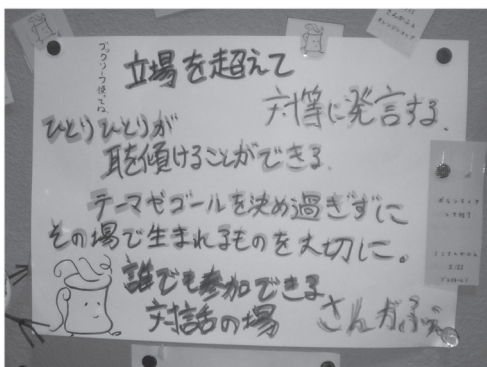 立場を超えて
対等に発言する。
ひとりひとりが
耳を傾けることができる。
テーマやゴールを決め過ぎずに
その場で生まれるものを大切に。
誰でも参加できる
対話の場
さんかふぇ